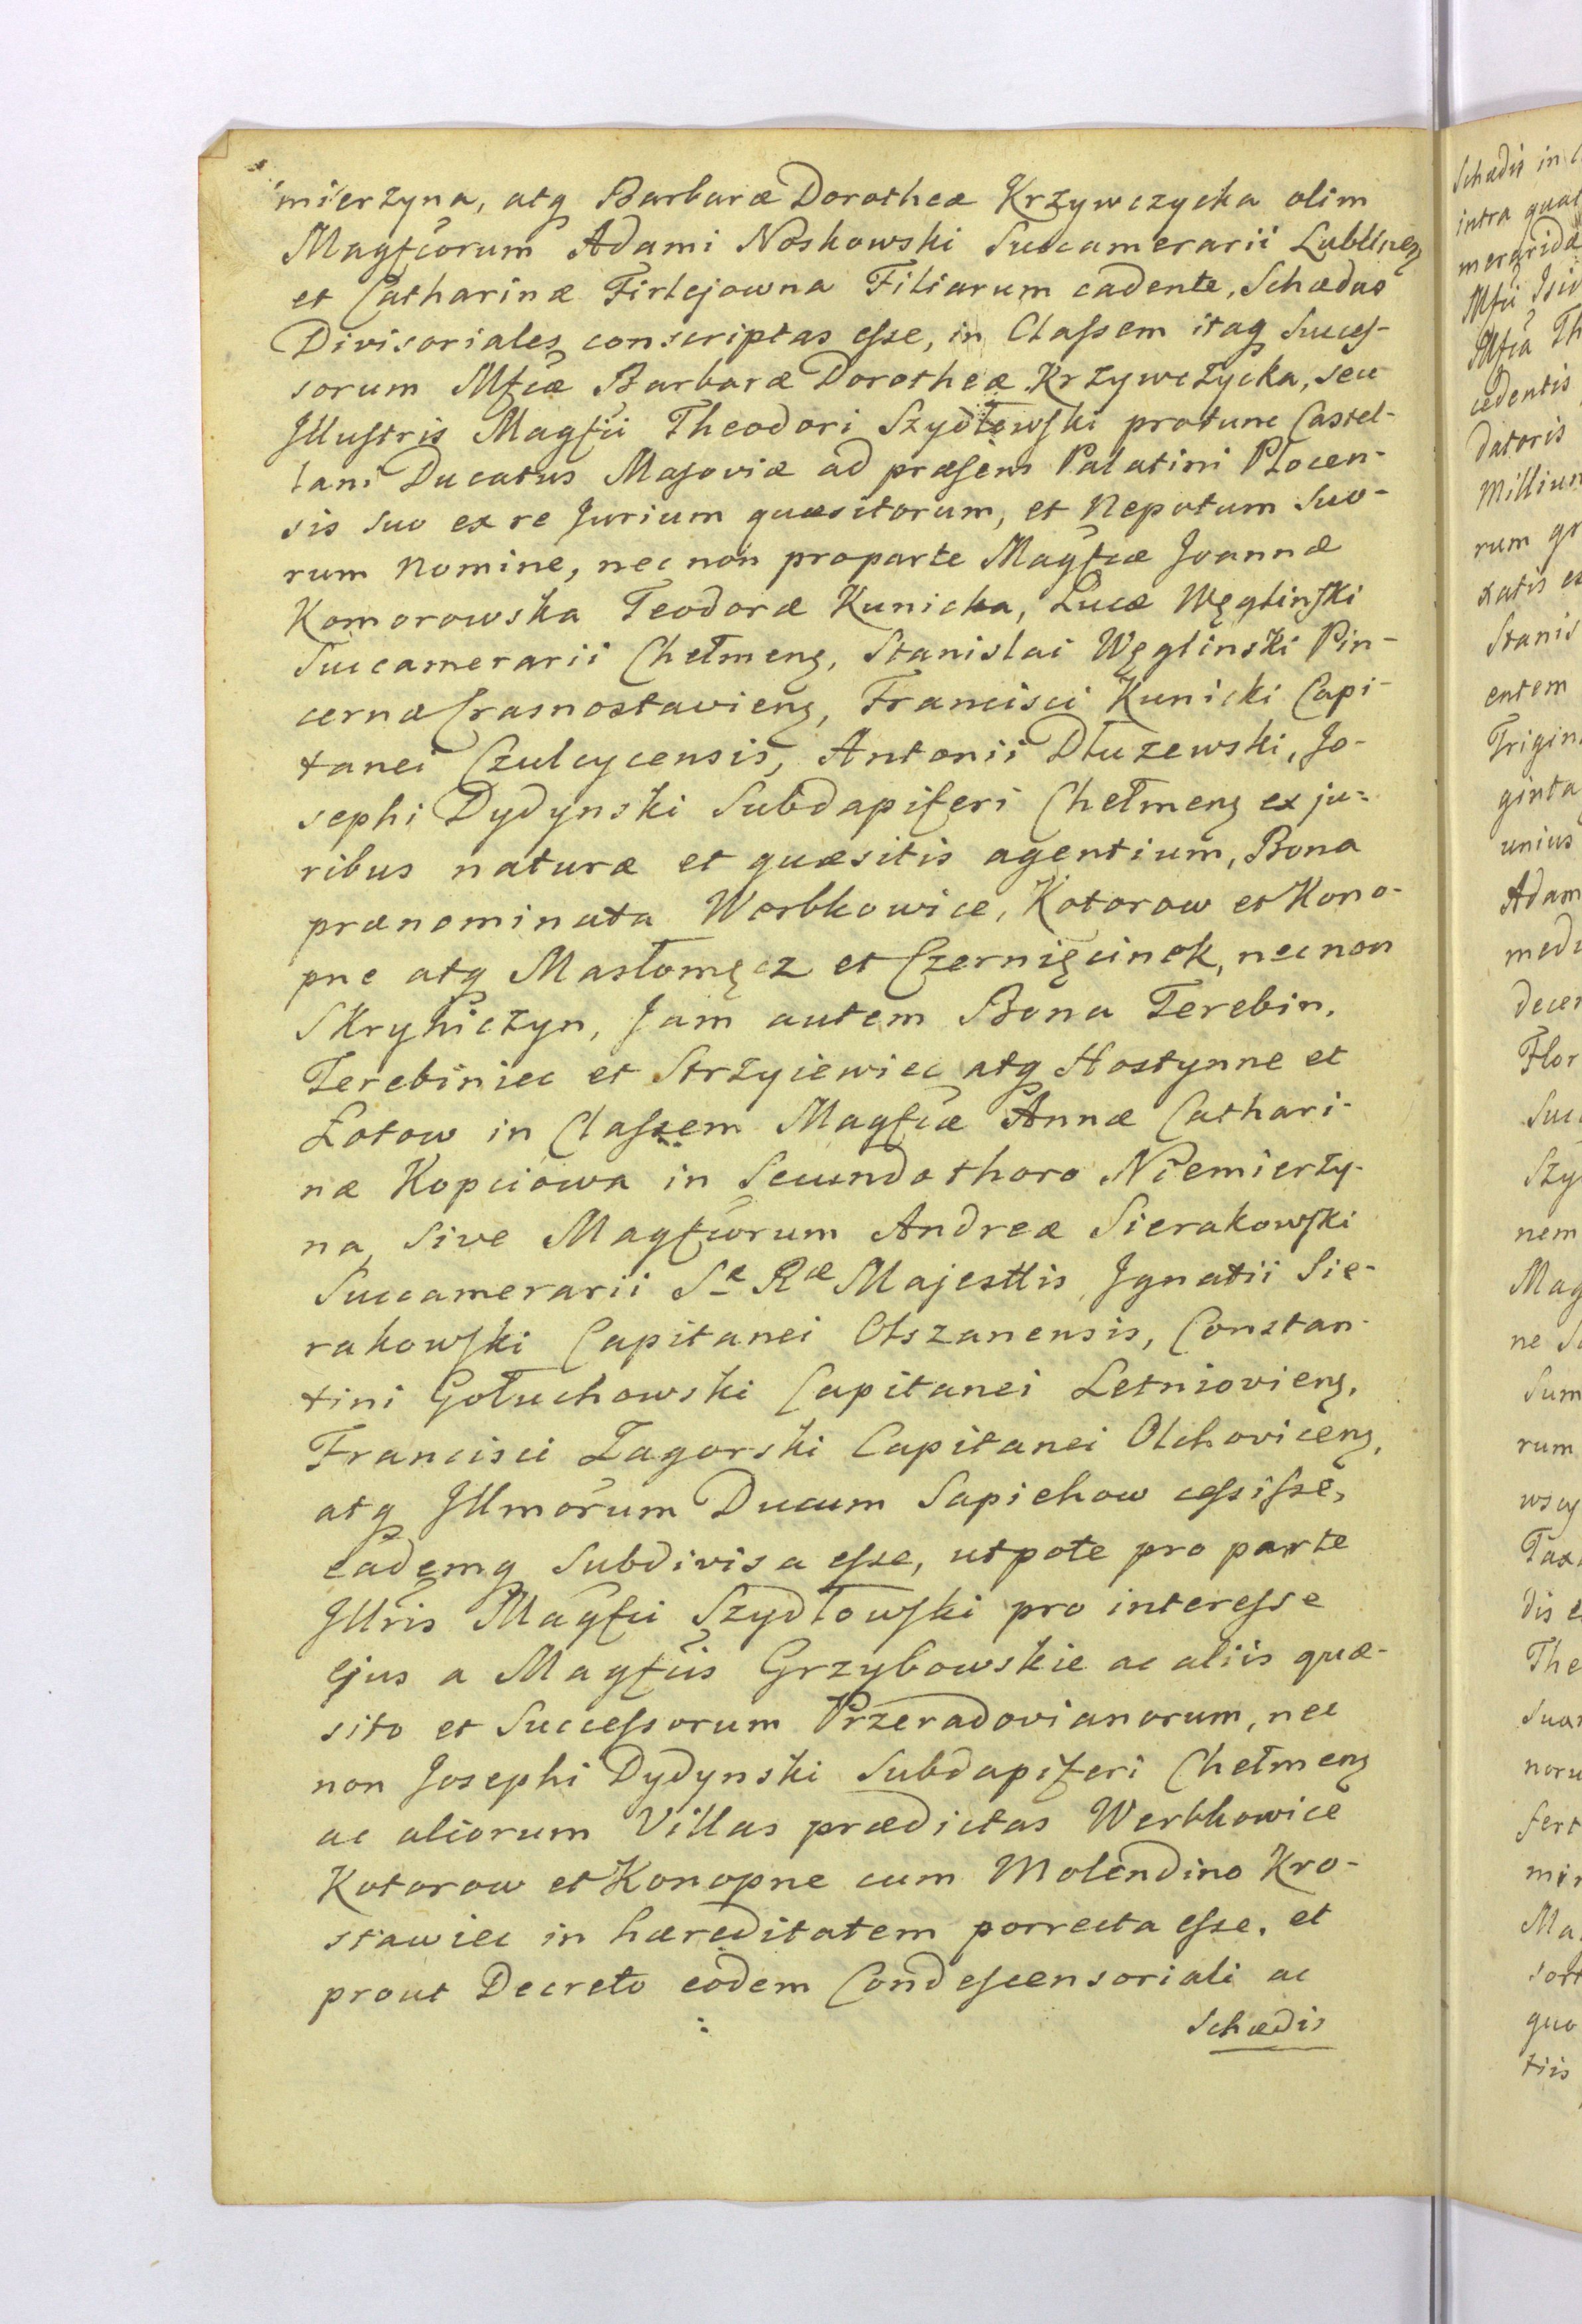 mierzyna, atq Barbaræ Dorotheæ Krzywczycka olim
Magfcorum Adami Noskowski Succamerarii Lublinenz
et Catharinæ Firlejowna Filiarum cadente, Schædas
Divisoriales conscriptas esse, in Classem itaq Succes-
sorum Mfcæ Barbaræ Dorotheæ Krzywczycka, seu
Illustris Magfci Theodori Szydłowski protunc Castel-
lani Ducatus Masoviæ ad præsens Palatini Plocen-
sis suo ex re Jurium quæsitorum, et Nepotum suo-
rum nomine, nec non proparte Magfcæ Joannæ
Komorowska Teodoræ Kunicka, Lucæ Węglinski
Succamerarii Chełmenz, Stanislai Węglinski Pin-
cernæ Crasnostavienz, Francisci Kunicki Capi-
tanei Czulcycensis, Antonii Dłuzewski, Jo-
sephi Dydynski Subdapiferi Chełmenz ex ju-
ribus naturæ et quæsitis agentium, Bona
prænominata Werbkowice, Kotorow et Kono-
pne atq Masłomęcz et Czernięcinek, nec non
Skryhiczyn, Jam autem Bona Terebin,
Terebiniec et Strzyiewiec atq Hostynne et
Łotow in Classem Magfcæ Annæ Cathari-
næ Kopciowa in Secundo thoro Niemierzy-
na, sive Magfcorum Andreæ Sierakowski
Succamerarii Sæ Ræ Majesttis, Ignatii Sie-
rakowski Capitanei Olszanensis, Constan-
tini Gołuchowski Capitanei Letniovienz,
Francisci Zagorski Capitanei Olchovicenz,
atq Illmorum Ducum Sapiehow cessisse,
eademq Subdivisa esse, utpote pro parte
Illris Magfci Szydłowski pro interesse
ejus a Magfcis Grzybowskie ac aliis quæ-
sito et Successorum Przeradovianorum, nec
non Josephi Dydynski Subdapiferi Chełmenz
ac aliorum Villas prædictas Werbkowice
Kotorow et Konopne cum Molendino Kro-
stawiec in hæreditatem porrecta esse, et
prout Decreto eodem Condescensoriali ac
Schædis
Schædis in
intra
Mfci
Mfca Th
cedentis
datoris
Millium
rum gr
xatis ex
Stanis
entem
Trigin
ginta
unius
Adam
decem
Flor
Succ
Szy
nem
Mag
ne
Sum
rum
Taxa
dis e
The
Suar
noru
fert
Ma
sort
quo
tiis